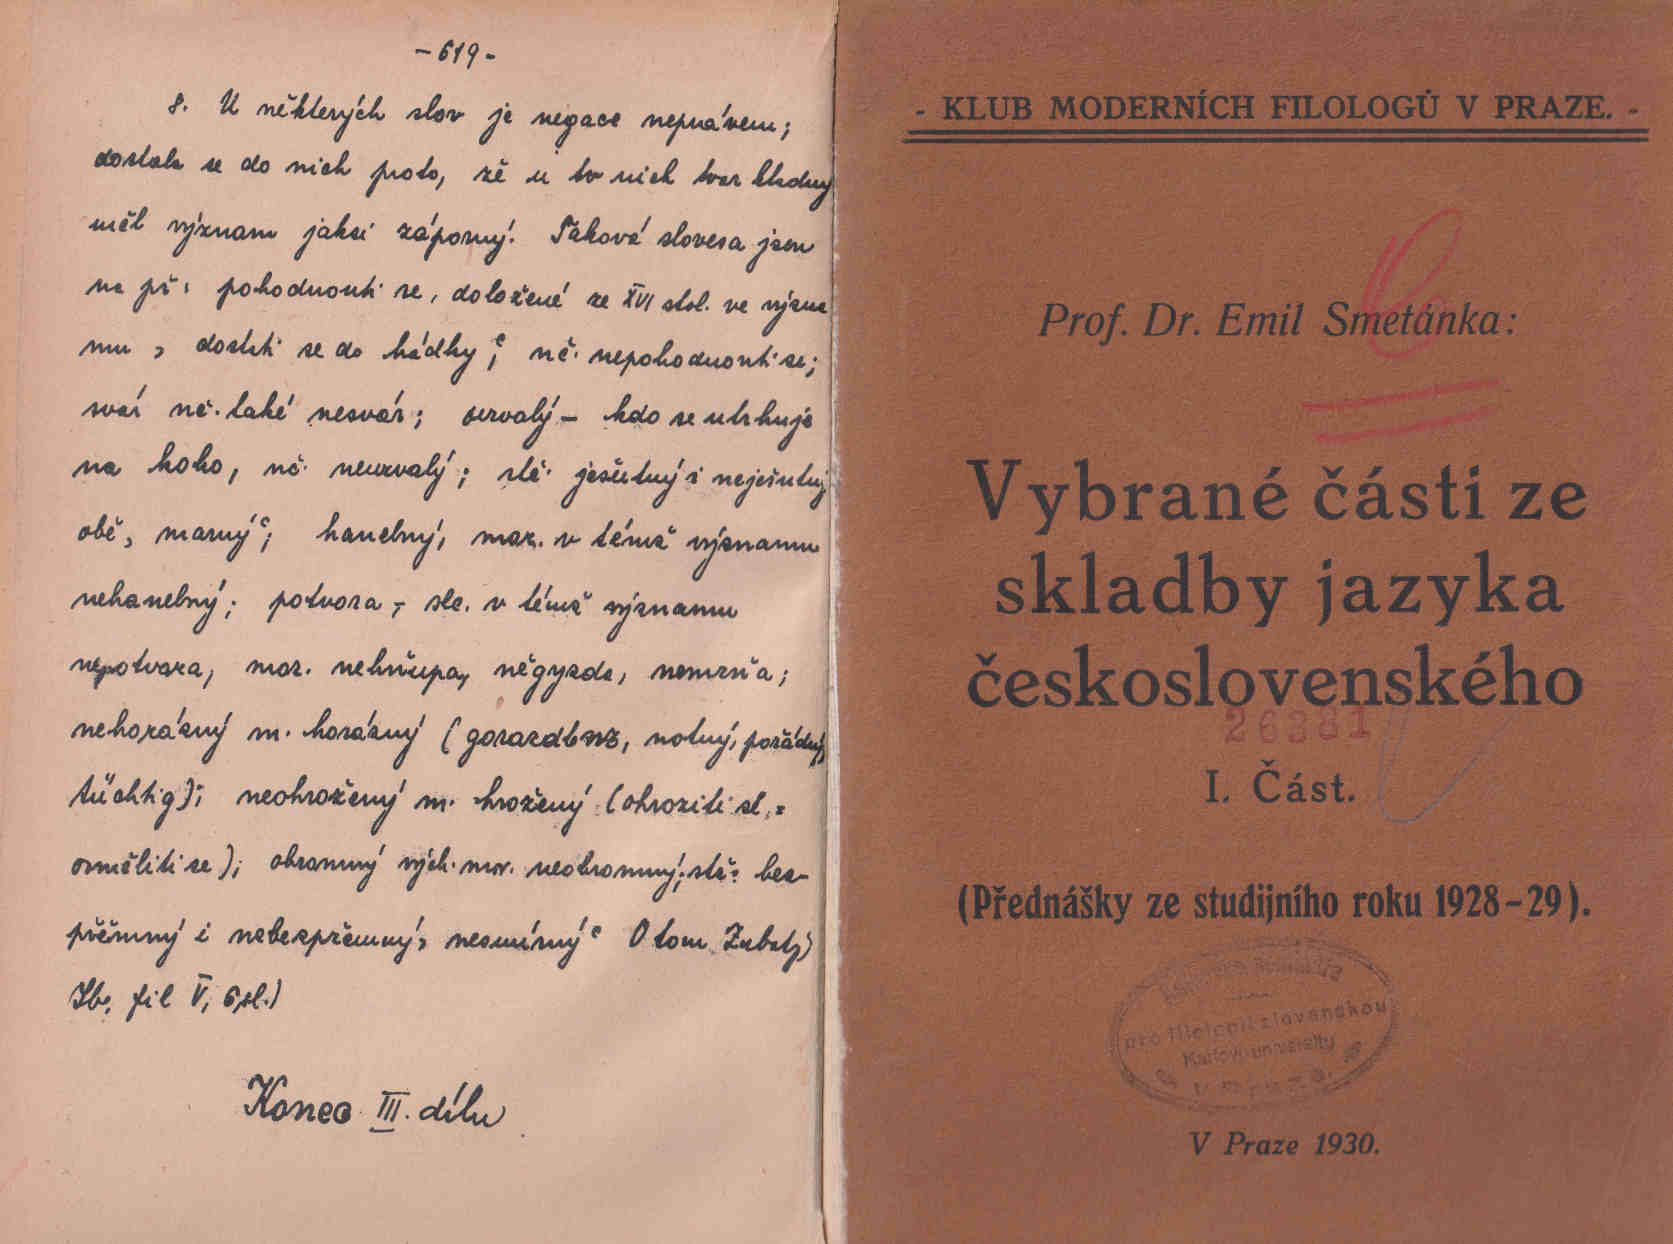 - 619 -
8. U některých slov je negace neprávem;
dostala se do nich proto, že u to nich tvar kladný
měl význam jaksi záporný. Taková slovesa jsou
na př. pohodnouti se, doložené ze XVI stol. ve význa
mu „ dostati se do hádky“; nč. nepohodnouti se;
svár nč. také nesvár; urvalý – kdo se utrhuje
na koho, nč. neurvalý; stč. ješutný i neješutný
obě „ marný“; hanebný, mor. v témž významu
nehanebný; potvora –, slc. v témž významu
nepotvora, mor. nehňupa, něgyzda, nemrňa;
nehorázný m. horázný (gorazdьnъ, notný, pořádný,
tüchtig); neohrožený m. hrožený (ohroziti se =
osměliti se); ohromný vých. mor. neohromný; stč. bez-
přěmný i nebezpřemný „ nesmírný“ O tom Zubatý
Sb. fil V, 6 sl.)
Konec III. dílu
- KLUB MODERNÍCH FILOLOGŮ V PRAZE. -
Prof. Dr. Emil Smetánka:
Vybrané části ze
skladby jazyka
československého
26381
I. Část.
(Přednášky ze studijního roku 1928-29).
pro filologii slovanskou
Karlovy university
v Praze.
V Praze 1930.